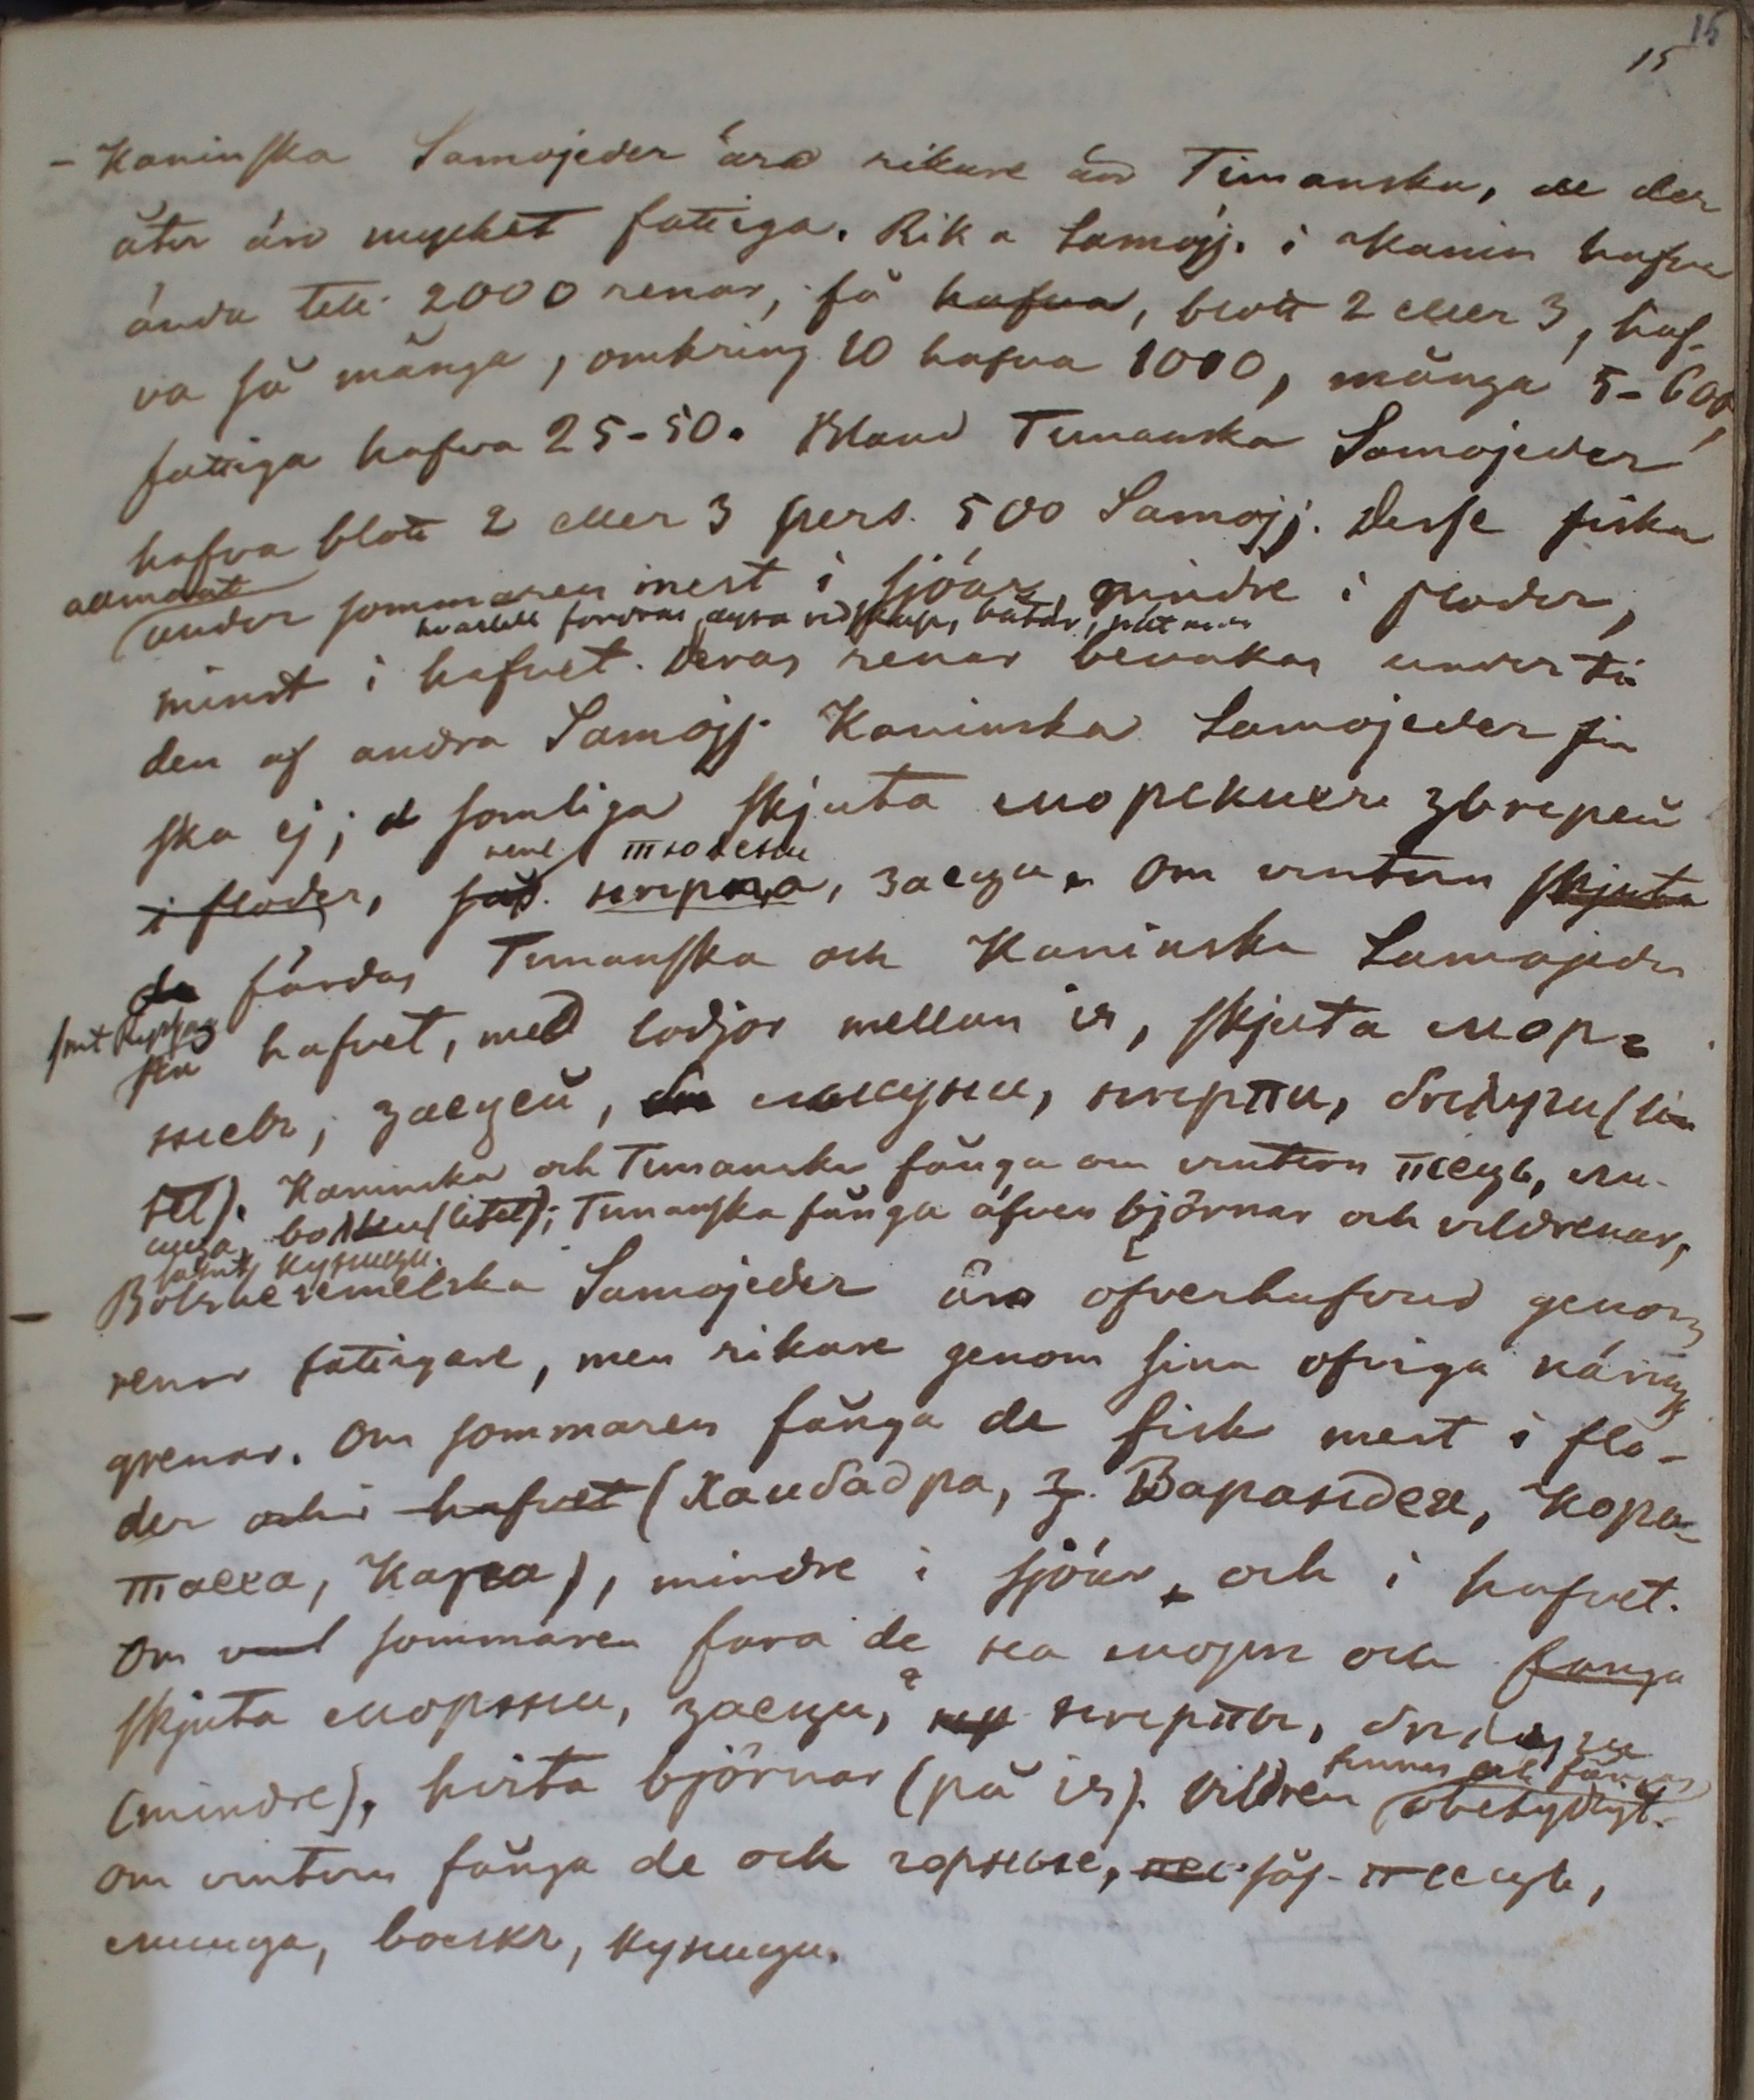 15
15
– Kaninska Samojeder äro rikare än Timanska, de der
åter äro mycket fattiga. Rika Samojj. i Kanin hafva
ända till 2000 renar, få hafva, blott 2 eller 3, haf-
va så många, omkring 10 hafva 1000, många 5-600,
fattiga hafva 25-50. Bland Timanska Samojeder
hafva blott 2 eller 3 pers. 500 Samojj. Desse fiska
allmänt
under sommaren mest i sjöar, mindre i floder,
hvartill fordras dyra redskap, båtar, nät
minst i hafvet. Deras renar bevakas under ti
den af andra Samojj. Kaninska Samojeder fi
ska ej; d somliga skjuta морскихъ звѣрей
neml тюлени
i floder, sås. нерпа, заецъ. Om vintern skjuta
de färdas Timanska och Kaninska Samojeder
på hafvet, med lodjor mellan is, skjuta мор-
жевъ, заецей, нерпи, бѣлуги (li
tet). Kaninska och Timanska fånga om vintern песцъ, ли-
сица, волки (litet); Timanska fånga äfven björnar och vildrenar,
samt куницы.
– Bolsheremelska Samojeder äro öfverhufvud genom
renar fattigare, men rikare genom sina öfriga närings
grenar. Om sommaren fånga de fisk mest i flo-
der och i hafvet (Хайбадра, З. Варандея, Коро-
таиха, Кара), mindre i sjöar, och i hafvet.
Om sommaren fara de на море och fånga
skjuta моржи, заецы, нерпы, бѣлуги
(mindre), hvita björnar (på is). Vildren obetydligt.
finnes och fångas
Om vintern fånga de och горные, såș. песцъ,
лисица, волкъ, куницы.